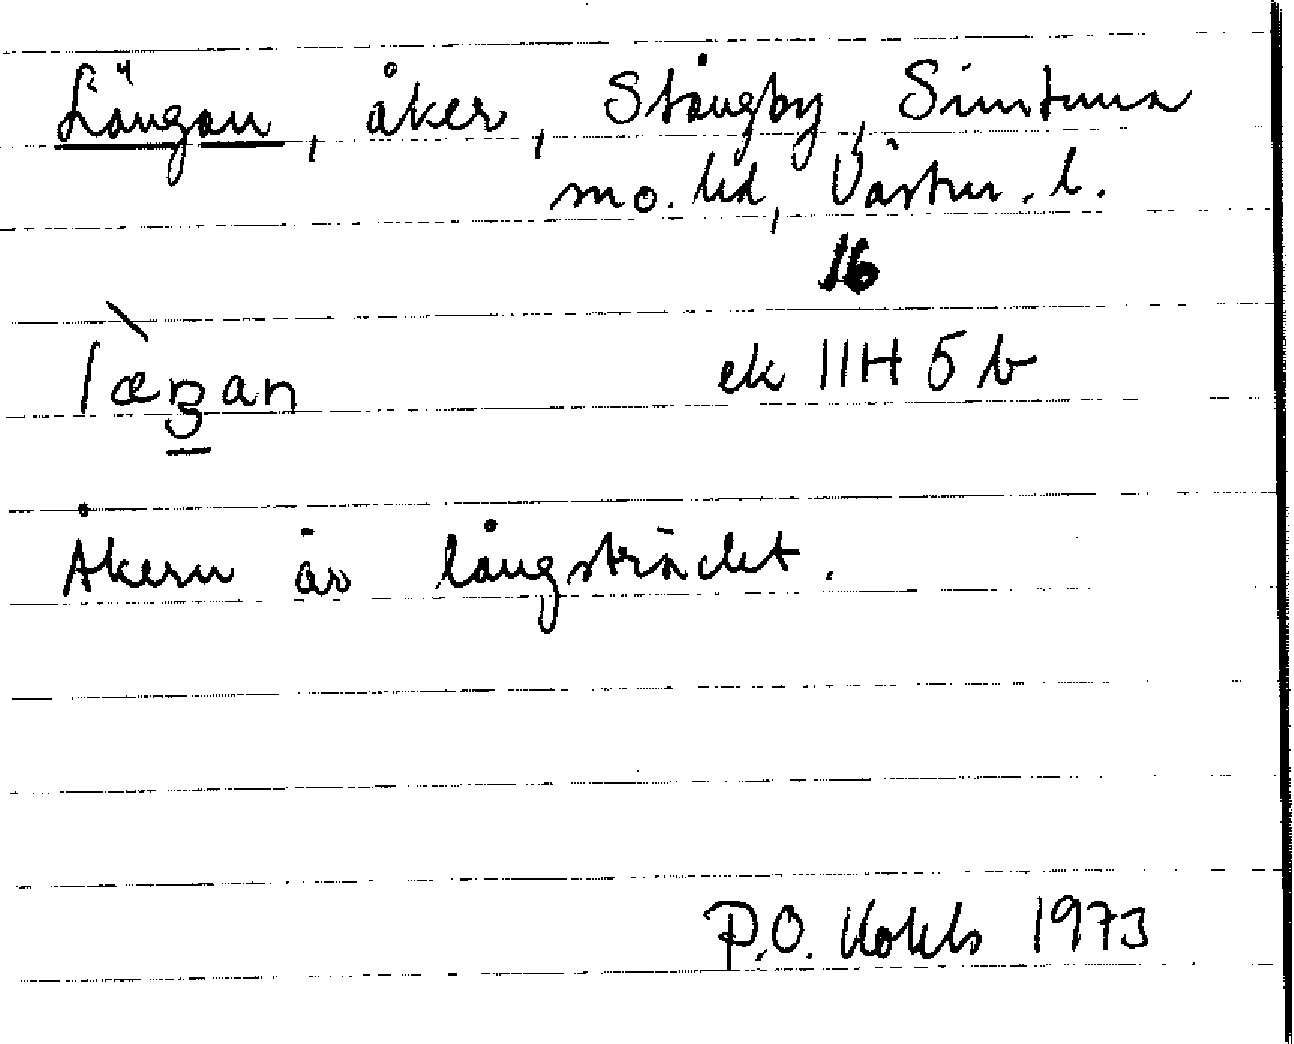 Längan, åker, Stångby, Simtuna
sno. hd, Västm. l.
16
læŋan ek 11H 5 b
Åkern är långsträckt.
P.O. 1973